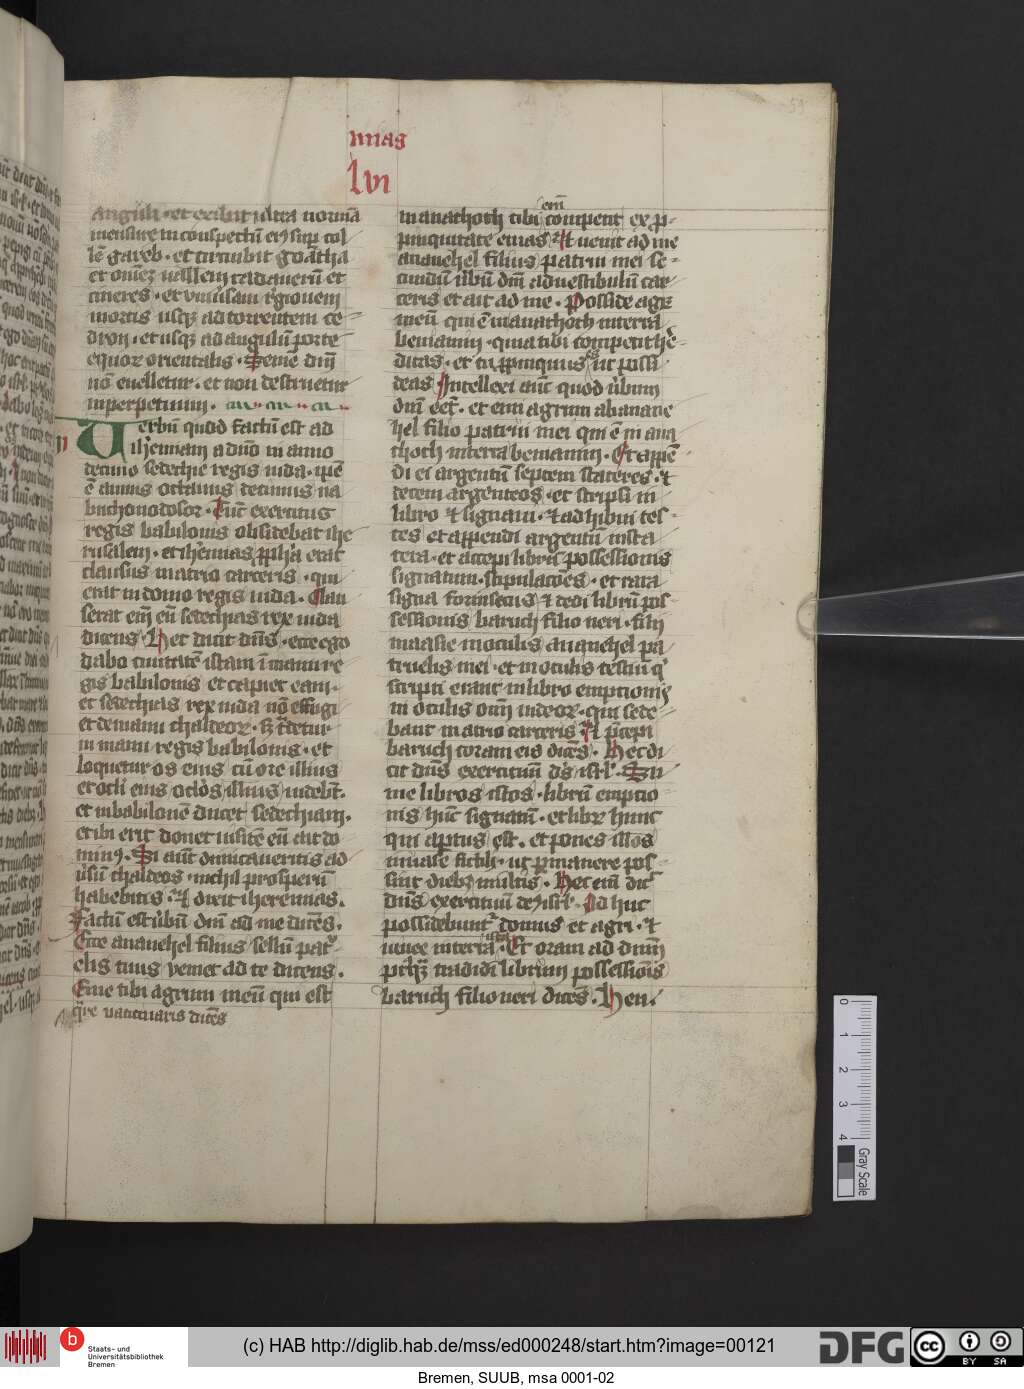 mias
lvi
anguli · et exibit ultra normā
mensure in conspectu eiꝰ sup col
lē gareb · et circuibit goatha
et omēꝫ vallem cadauerū et
cineres · et vniūsam r̄gionem
mortis usqꝫ ad torrentem ce
dron · et usqꝫ ad angulū porte
equoꝝ orientalis · Scm̄ dn̄i
nō euelletur · et non destruetur
in perpetuum ·
Verbū quod factū est ad
ih̓emiam a dn̄o in anno
decimo sedechie regis iuda · ip̄e
ē annus octauus decimus na
buchonodosor · Tūc exercitus
regis babilonis obsidebat ihe
rusalem · et ih̓emias ꝓph̓a erat
clausus in atrio carceris · qui
erat in domo regis iuda · Clau
serat em̄ eū sedechias rex iuda
dicens · Hec dicit dn̄s · ecce ego
dabo ciuitatē istam ī manu re
gis babilonis et capiet eam ·
et sedechias rex iuda nō effugi
et de manu chaldeoꝝ · sꝫ t̓detur
in manu regis babilonis · et
loquetur os eius cū ore illius
et ocl̓i eius ocl̓os illius videbt̄ ·
et in babilonē ducet sedechiam ·
et ibi erit donec visitē eū ait do
minꝰ · Si aūt dimicaueritis ad
ūsū chaldeos · nichil prosperū
habebitis · Et dixit iheremias ·
Factū est ūbū dn̄i ad me dicēs ·
Ecce anameel filius sellū pat̓
elis tuus veniet ad te dicens ·
Eme tibi agrum meū qui est
q̄re vaticinaris dicēs
in anathoth tibi em̄ competit ex ꝓ
pinquitate emas · Et venit ad me
anameel filius patrui mei se
cundū ūbū dn̄i ad vestibulū car
ceris et ait ad me · Posside agꝝ
meū qui ē in anathoth in terra
beniamin · quia tibi competit he
ditas · et tu ꝓpinquus es ut possi
deas Intellexi aūt quod ūbum
dn̄i eēt · et emi agrum ab aname
hel filio patrui mei qui ē in ana
thoth in terra beniamin · Et appē
di ei argentū septem stateres · et
decem argenteos · et scripsi in
libro et signaui · Et adhibui tes
tes et appendi argentū in sta
tera · et accepi librū possessionis
signatum · stipulacōes · et rata
signa forinsecus et dedi librū pos
sessionis baruch filio neri · filii
maasie in oculis anameel pa
truelis mei · et in oculis testiū q̓
scripti erant in libro empcionis
in oculis om̄ iudeoꝝ · qui sede
bant in atrio carceris · Et p̄cepi
baruch coram eis dicēs · Hec di
cit dn̄s exercituum ds̄ isrl̓ · Su
me libros istos · librū empcio
nis hūc signatū · et librū hunc
qui aptus est · et pones illos
in vase fictili · ut ꝑmanere pos
sint diebꝫ multis · Hec em̄ dic̄
dn̄s exercituum de᷒ isrl̓ · Adhuc
possidebunt̓ domus et agri · et
vinee in terra ista · Et oraui ad dn̄m
pꝰtq̄ꝫ tradidi librum possessionis
baruch filio neri dicēs · Heu ·
0 1 2 3 4
Gray Scale
b
Staats- und
Universitätsbibliothek
Bremen
(c) HAB http://diglib.hab.de/mss/ed000248/start.htm?image=00121
DFG
cc BY SA
Bremen, SUUB, msa 0001-02